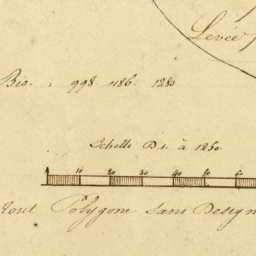 Levée
Bio. . 998. 1186. 1280
Echelle De. à 1250
10 20 30 40 50 60
tout Polygone Sans Design